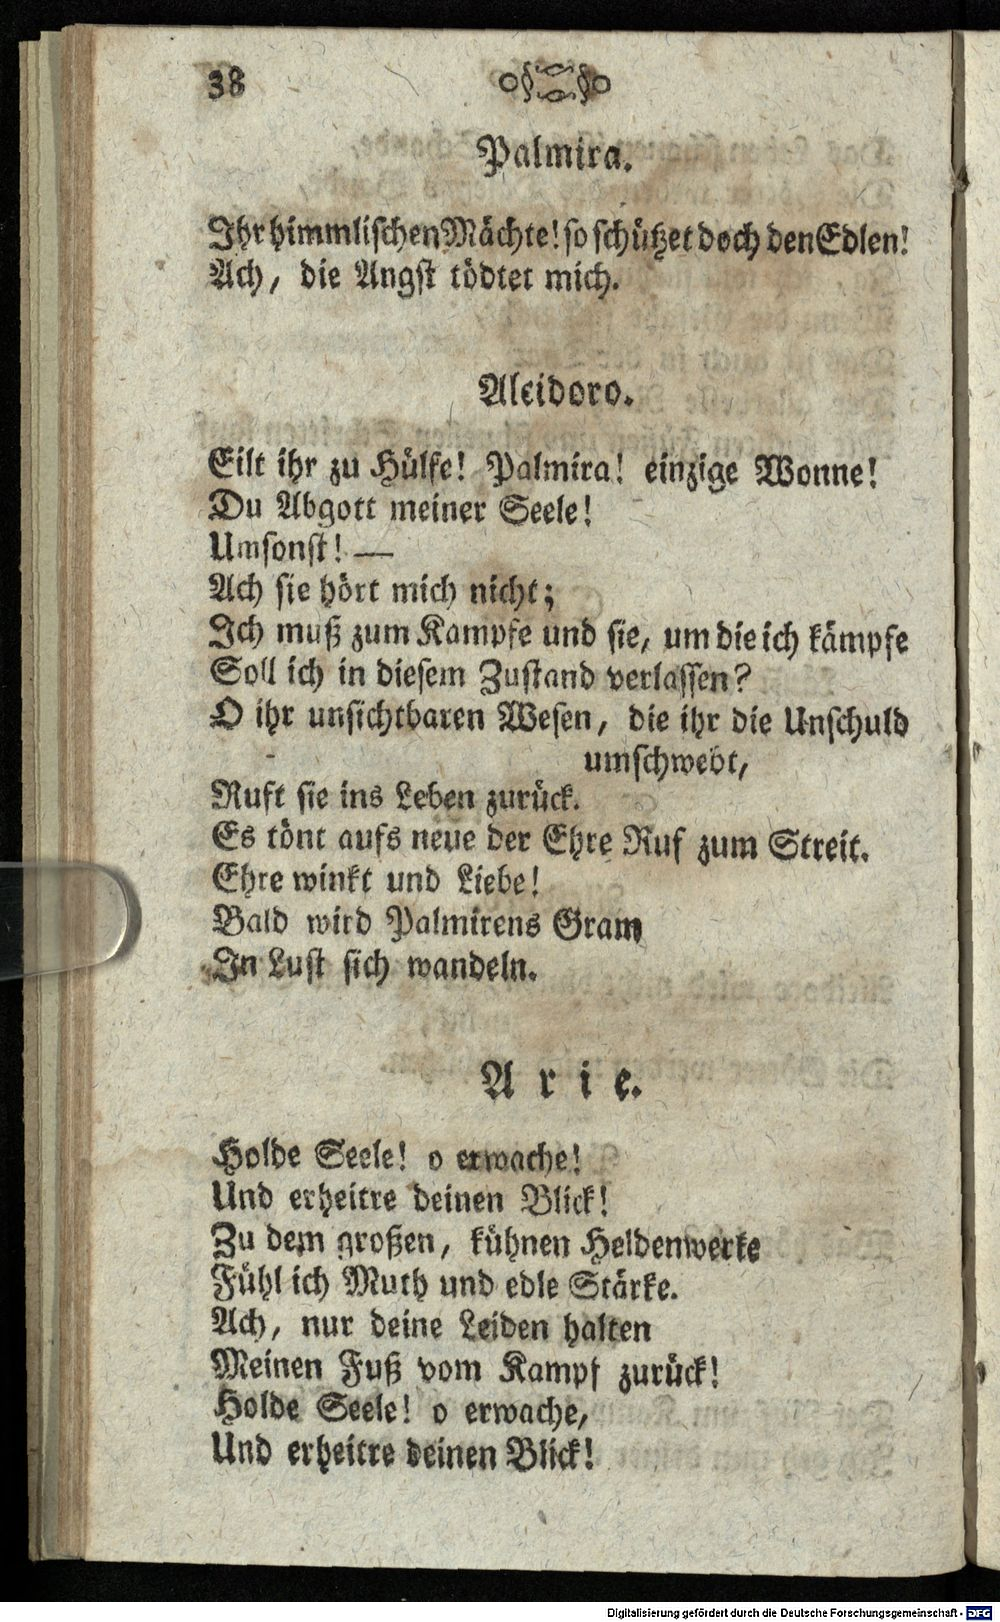 38
Palmira.
Ihr himmlischen Mächte! so schützet doch den Edlen!
Ach, die Angst tödtet mich.
Alcidoro.
Eilt ihr zu Hülfe! Palmira! einzige Wonne!
Du Abgott meiner Seele!
Umsonst! —
Ach sie hört mich nicht;
Ich muß zum Kampfe und sie, um die ich kämpfe
Soll ich in diesem Zustand verlassen?
O ihr unsichtbaren Wesen, die ihr die Unschuld
umschwebt,
Ruft sie ins Leben zurück.
Es tönt aufs neue der Ehre Ruf zum Streit.
Ehre winkt und Liebe!
Bald wird Palmirens Gram
In Lust sich wandeln.
Arie.
Holde Seele! o erwache!
Und erheitre deinen Blick!
Zu dem großen, kühnen Heldenwerke
Fühl ich Muth und edle Stärke.
Ach, nur deine Leiden halten
Meinen Fuß vom Kampf zurück!
Holde Seele! o erwache,
Und erheitre deinen Blick!
Digitalisierung gefördert durch die Deutsche Forschungsgemeinschaft - DFG